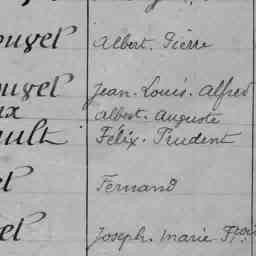 ouvel Albert. Pierre
ouvel Jean. Louis. Alfred
ux Albert. Auguste
ault Félix. Prudent
el Fernand
el Joseph. Marie